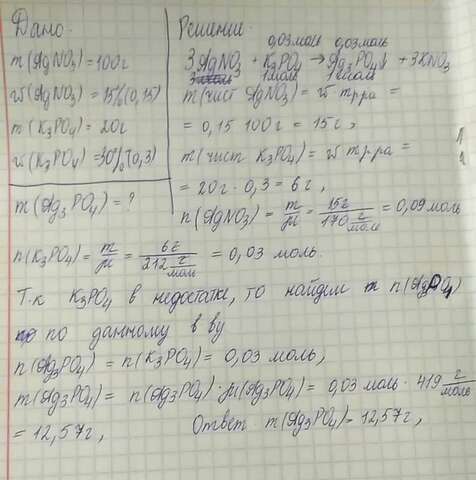 Дано:
m(AgNO3) = 100г
ω(AgNO3) = 15% (0,15)
m(K3PO4) = 20г
ω(K3PO4) = 30% (0,3)
m(Ag3PO4) = ?
Решение:
0,03 моль 0,03 моль
3AgNO3 + K3PO4 → Ag3PO4↓ + 3KNO3
3 моль 1 моль 1 моль
m(чист AgNO3) = ω · m р-ра =
= 0,15 · 100г = 15г,
m(чист K3PO4) = ω · m р-ра =
= 20г · 0,3 = 6г,
n(AgNO3) = m/μ = 15г / 170 г/моль = 0,09 моль
n(K3PO4) = m/μ = 6г / 212 г/моль = 0,03 моль.
Т.к K3PO4 в недостатке, то найдем n(Ag3PO4)
по данному в-ву
n(Ag3PO4) = n(K3PO4) = 0,03 моль,
m(Ag3PO4) = n(Ag3PO4) · μ(Ag3PO4) = 0,03 моль · 419 г/моль
= 12,57г, Ответ m(Ag3PO4) - 12,57г,